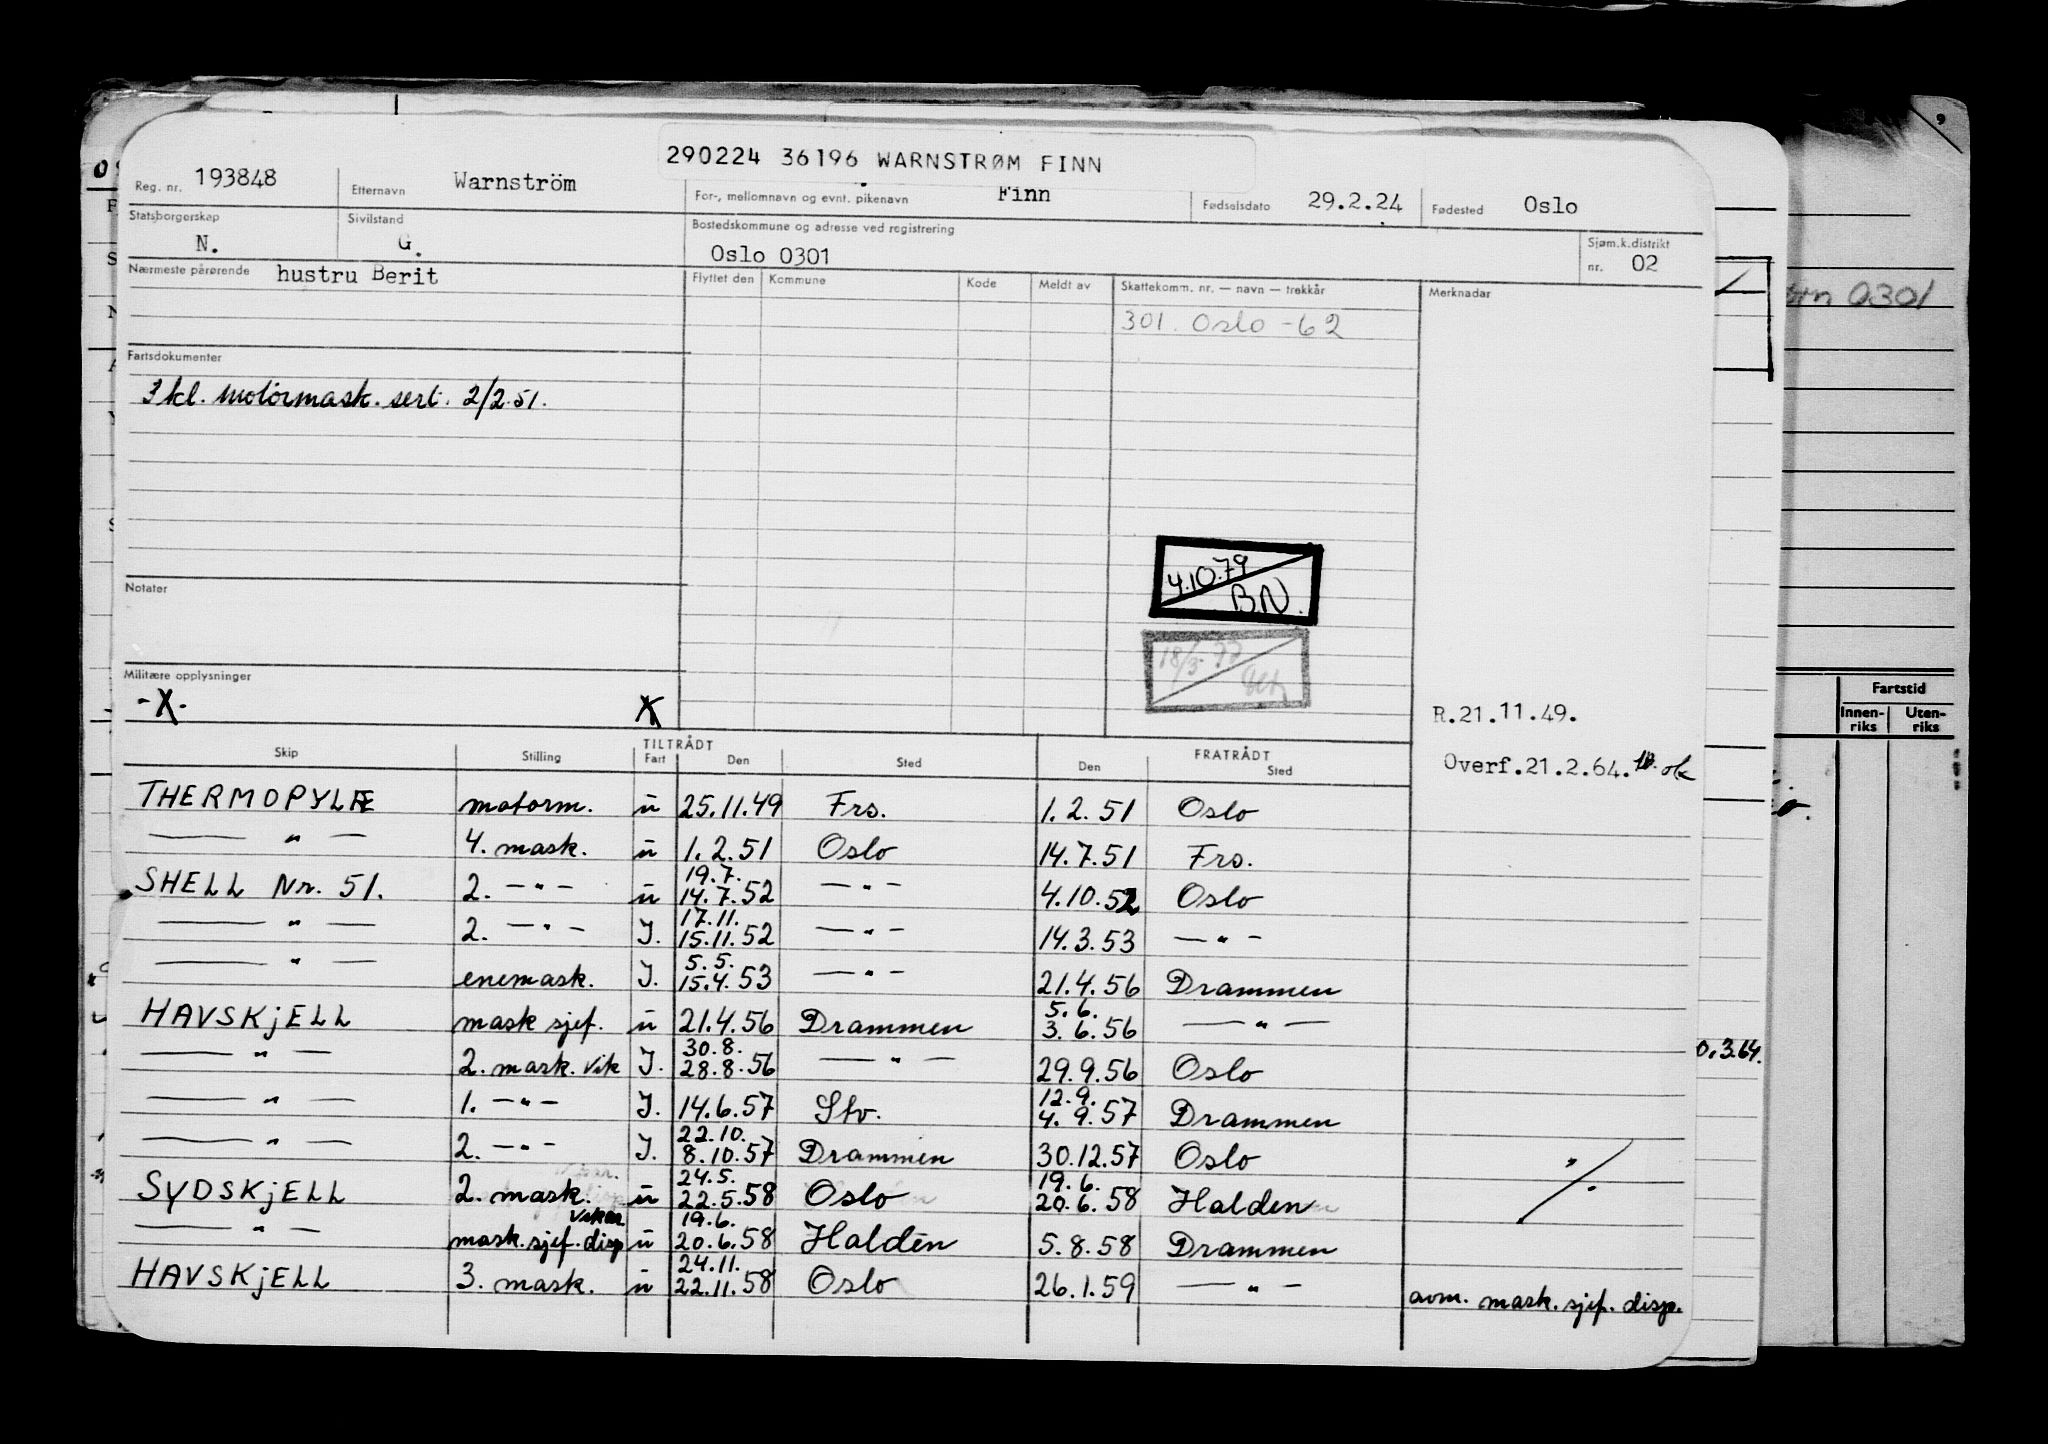 290224 36196 WARNSTRØM FINN
Reg. nr. 193848 Etternavn Warnström For-, mellomnavn og evnt. pikenavn Finn Fødselsdato 29.2.24 Fødested Oslo
Statsborgerskap N. Sivilstand G. Bostedskommune og adresse ved registrering Oslo 0301 Sjøm.k.distrikt nr. 02
Nærmeste pårørende hustru Berit Flyttet den Kommune Kode Meldt av Skattekomm. nr. — navn — trekkår Merknader
301. Oslo -62
Fartsdokumenter
3 kl. motormask. sert. 2/2.51.
4.10.79
BN.
Notater
Militære opplysninger
-X- X
R.21.11.49.
Overf.21.2.64. ok
TILTRÅDT FRATRÅDT
Skip Stilling Fart Den Sted Den Sted
THERMOPYLÆ motorm. u 25.11.49 Frs. 1.2.51 Oslo
— " — 4. mask. u 1.2.51 Oslo 14.7.51 Frs.
19.7.
SHELL Nr. 51. 2. — " — u 14.7.52 — " — 4.10.52 Oslo
17.11.
— " — 2. — " — I. 15.11.52 — " — 14.3.53 — " —
5.5.
— " — enemask. I. 15.4.53 — " — 21.4.56 Drammen
5.6.
HAVSKJELL mask sjef. u 21.4.56 Drammen 3.6.56 — " —
30.8.
— " — 2. mask. vik I. 28.8.56 — " — 29.9.56 Oslo
12.9.
— " — 1. — " — I. 14.6.57 Stv. 4.9.57 Drammen
22.10.
— " — 2. — " — I. 8.10.57 Drammen 30.12.57 Oslo
24.5. 19.6.
SYDSKJELL 2. mask. u 22.5.58 Oslo 20.6.58 Halden
vikar 19.6.
— " — mask. sjef. disp u 20.6.58 Halden 5.8.58 Drammen
24.11.
HAVSKJELL 3. mask. u 22.11.58 Oslo 26.1.59 — " — avm. mask. sjef. disp.
0301
Fartstid
Innen-riks Uten-riks
.3.64.